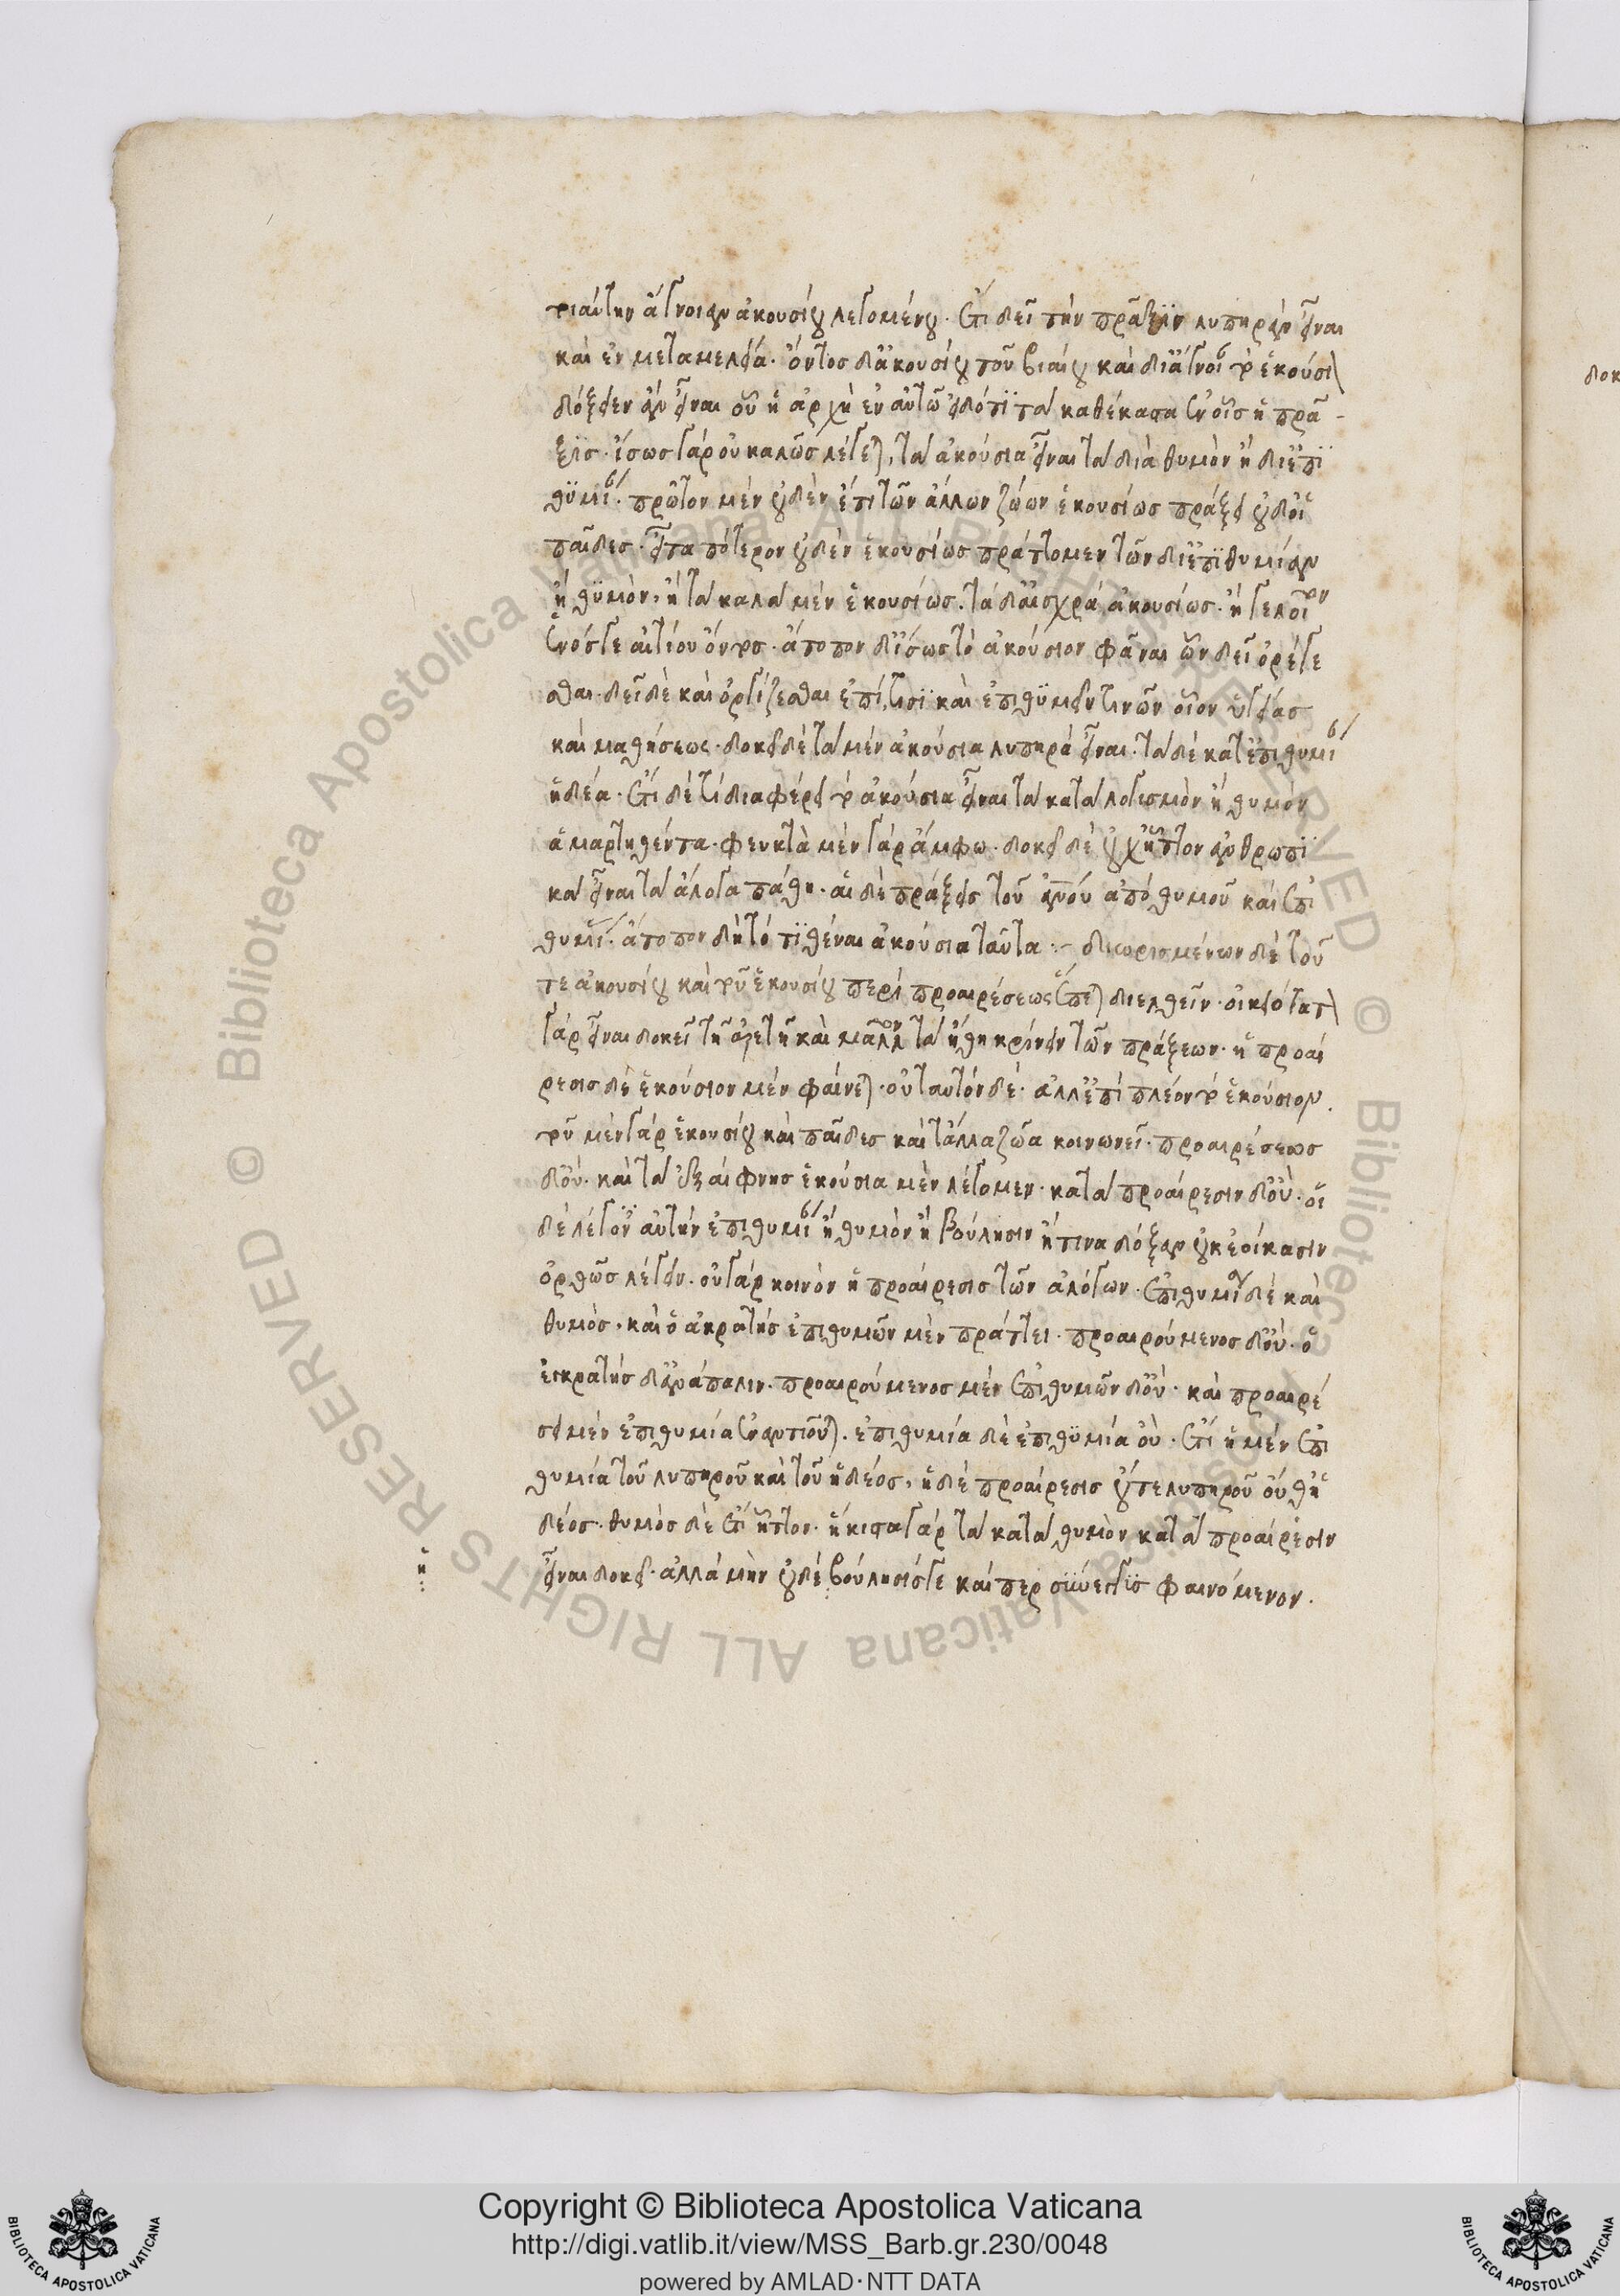 τοιαύτην ἄγνοιαν ἀκουσίου λεγομένου. ἔτι δεῖ τὴν πρᾶξιν λυπηρὰν εἶναι
καὶ ἐν μεταμελείᾳ. ὄντος δ' ἀκουσίου τοῦ βιαίου καὶ δι' ἄγνοιαν τὸ ἑκούσιον
δόξειεν ἂν εἶναι οὗ ἡ ἀρχὴ ἐν αὐτῷ εἰδότι τὰ καθέκαστα ἐν οἷς ἡ πρᾶ-
ξις. ἴσως γὰρ οὐ καλῶς λέγεται, τὰ ἀκούσια εἶναι τὰ διὰ θυμὸν ἢ δι' ἐπι
θυμίαν. πρῶτον μὲν οὐδὲν ἔτι τῶν ἄλλων ζώων ἑκουσίως πράξει οὐδ' οἱ
παῖδες. εἶτα πότερον οὐδὲν ἑκουσίως πράττομεν τῶν δι' ἐπιθυμίαν
ἢ θυμὸν, ἢ τὰ καλὰ μὲν ἑκουσίως. τὰ δ' αἰσχρὰ ἀκουσίως. ἢ γελοῖον
ἑνός γε αἰτίου ὄντος. ἄτοπον δ' ἴσως τὸ ἀκούσιον φᾶναι ὧν δεῖ ὀρέγε
σθαι. δεῖ δὲ καὶ ὀργίζεσθαι ἐπί τισι καὶ ἐπιθυμεῖν τινῶν οἷον ὑγείας
καὶ μαθήσεως. δοκεῖ δὲ τὰ μὲν ἀκούσια λυπηρὰ εἶναι. τὰ δὲ κατ' ἐπιθυμίαν
ἡδέα. ἔτι δὲ τί διαφέρει τὸ ἀκούσια εἶναι τὰ κατὰ λογισμὸν ἢ θυμὸν
ἁμαρτηθέντα. φευκτὰ μὲν γὰρ ἄμφω. δοκεῖ δὲ οὐχ ἧττον ἀνθρωπι
κὰ εἶναι τὰ ἄλογα πάθη. αἱ δὲ πράξεις τοῦ ἀνου ἀπὸ θυμοῦ καὶ ἐπι
θυμίας. ἄτοπον δὴ τὸ τιθέναι ἀκούσια ταῦτα :~ διωρισμένων δὲ τοῦ
τε ἀκουσίου καὶ τοῦ ἑκουσίου περὶ προαιρέσεως ἕπεται διελθεῖν. οἰκειότατον
γὰρ εἶναι δοκεῖ τῇ ἀρετῇ καὶ μᾶλλον τὰ ἤθη κρίνειν τῶν πράξεων. ἡ προαί
ρεσις δὲ ἑκούσιον μὲν φαίνεται. οὐ ταυτὸν δέ. ἀλλ' ἐπὶ πλέον τὸ ἑκούσιον.
τοῦ μὲν γὰρ ἑκουσίου καὶ παῖδες καὶ τἄλλα ζῶα κοινωνεῖ. προαιρέσεως
δ' οὔ. καὶ τὰ ἐξαίφνης ἑκούσια μὲν λέγομεν. κατὰ προαίρεσιν δ' οὔ. οἱ
δὲ λέγοντες αὐτὴν ἐπιθυμίαν ἢ θυμὸν ἢ βούλησιν ἤ τινα δόξαν οὐκ ἐοίκασιν
ὀρθῶς λέγειν. οὐ γὰρ κοινὸν ἡ προαίρεσις τῶν ἀλόγων. ἐπιθυμία δὲ καὶ
θυμός. καὶ ὁ ἀκρατὴς ἐπιθυμῶν μὲν πράττει. προαιρούμενος δ' οὔ. ὁ
ἐγκρατὴς δ' ἀνάπαλιν. προαιρούμενος μὲν ἐπιθυμῶν δ' οὔ. καὶ προαιρέ
σει μὲν ἐπιθυμία ἐναντιοῦται. ἐπιθυμία δὲ ἐπιθυμία οὔ. ἔτι ἡ μὲν ἐπι
θυμία τοῦ λυπηροῦ καὶ τοῦ ἡδέος, ἡ δὲ προαίρεσις οὔτε λυπηροῦ οὔθ' ἡ
δέος. θυμὸς δὲ ἔτι ἧττον. ἥκιστα γὰρ τὰ κατὰ θυμὸν κατὰ προαίρεσιν
εἶναι δοκεῖ. ἀλλὰ μὴν οὐδὲ βούλησίς γε καίπερ σύνεγγυς φαινόμενον.
δοκ
Copyright © Biblioteca Apostolica Vaticana
http://digi.vatlib.it/view/MSS_Barb.gr.230/0048
powered by AMLAD·NTT DATA